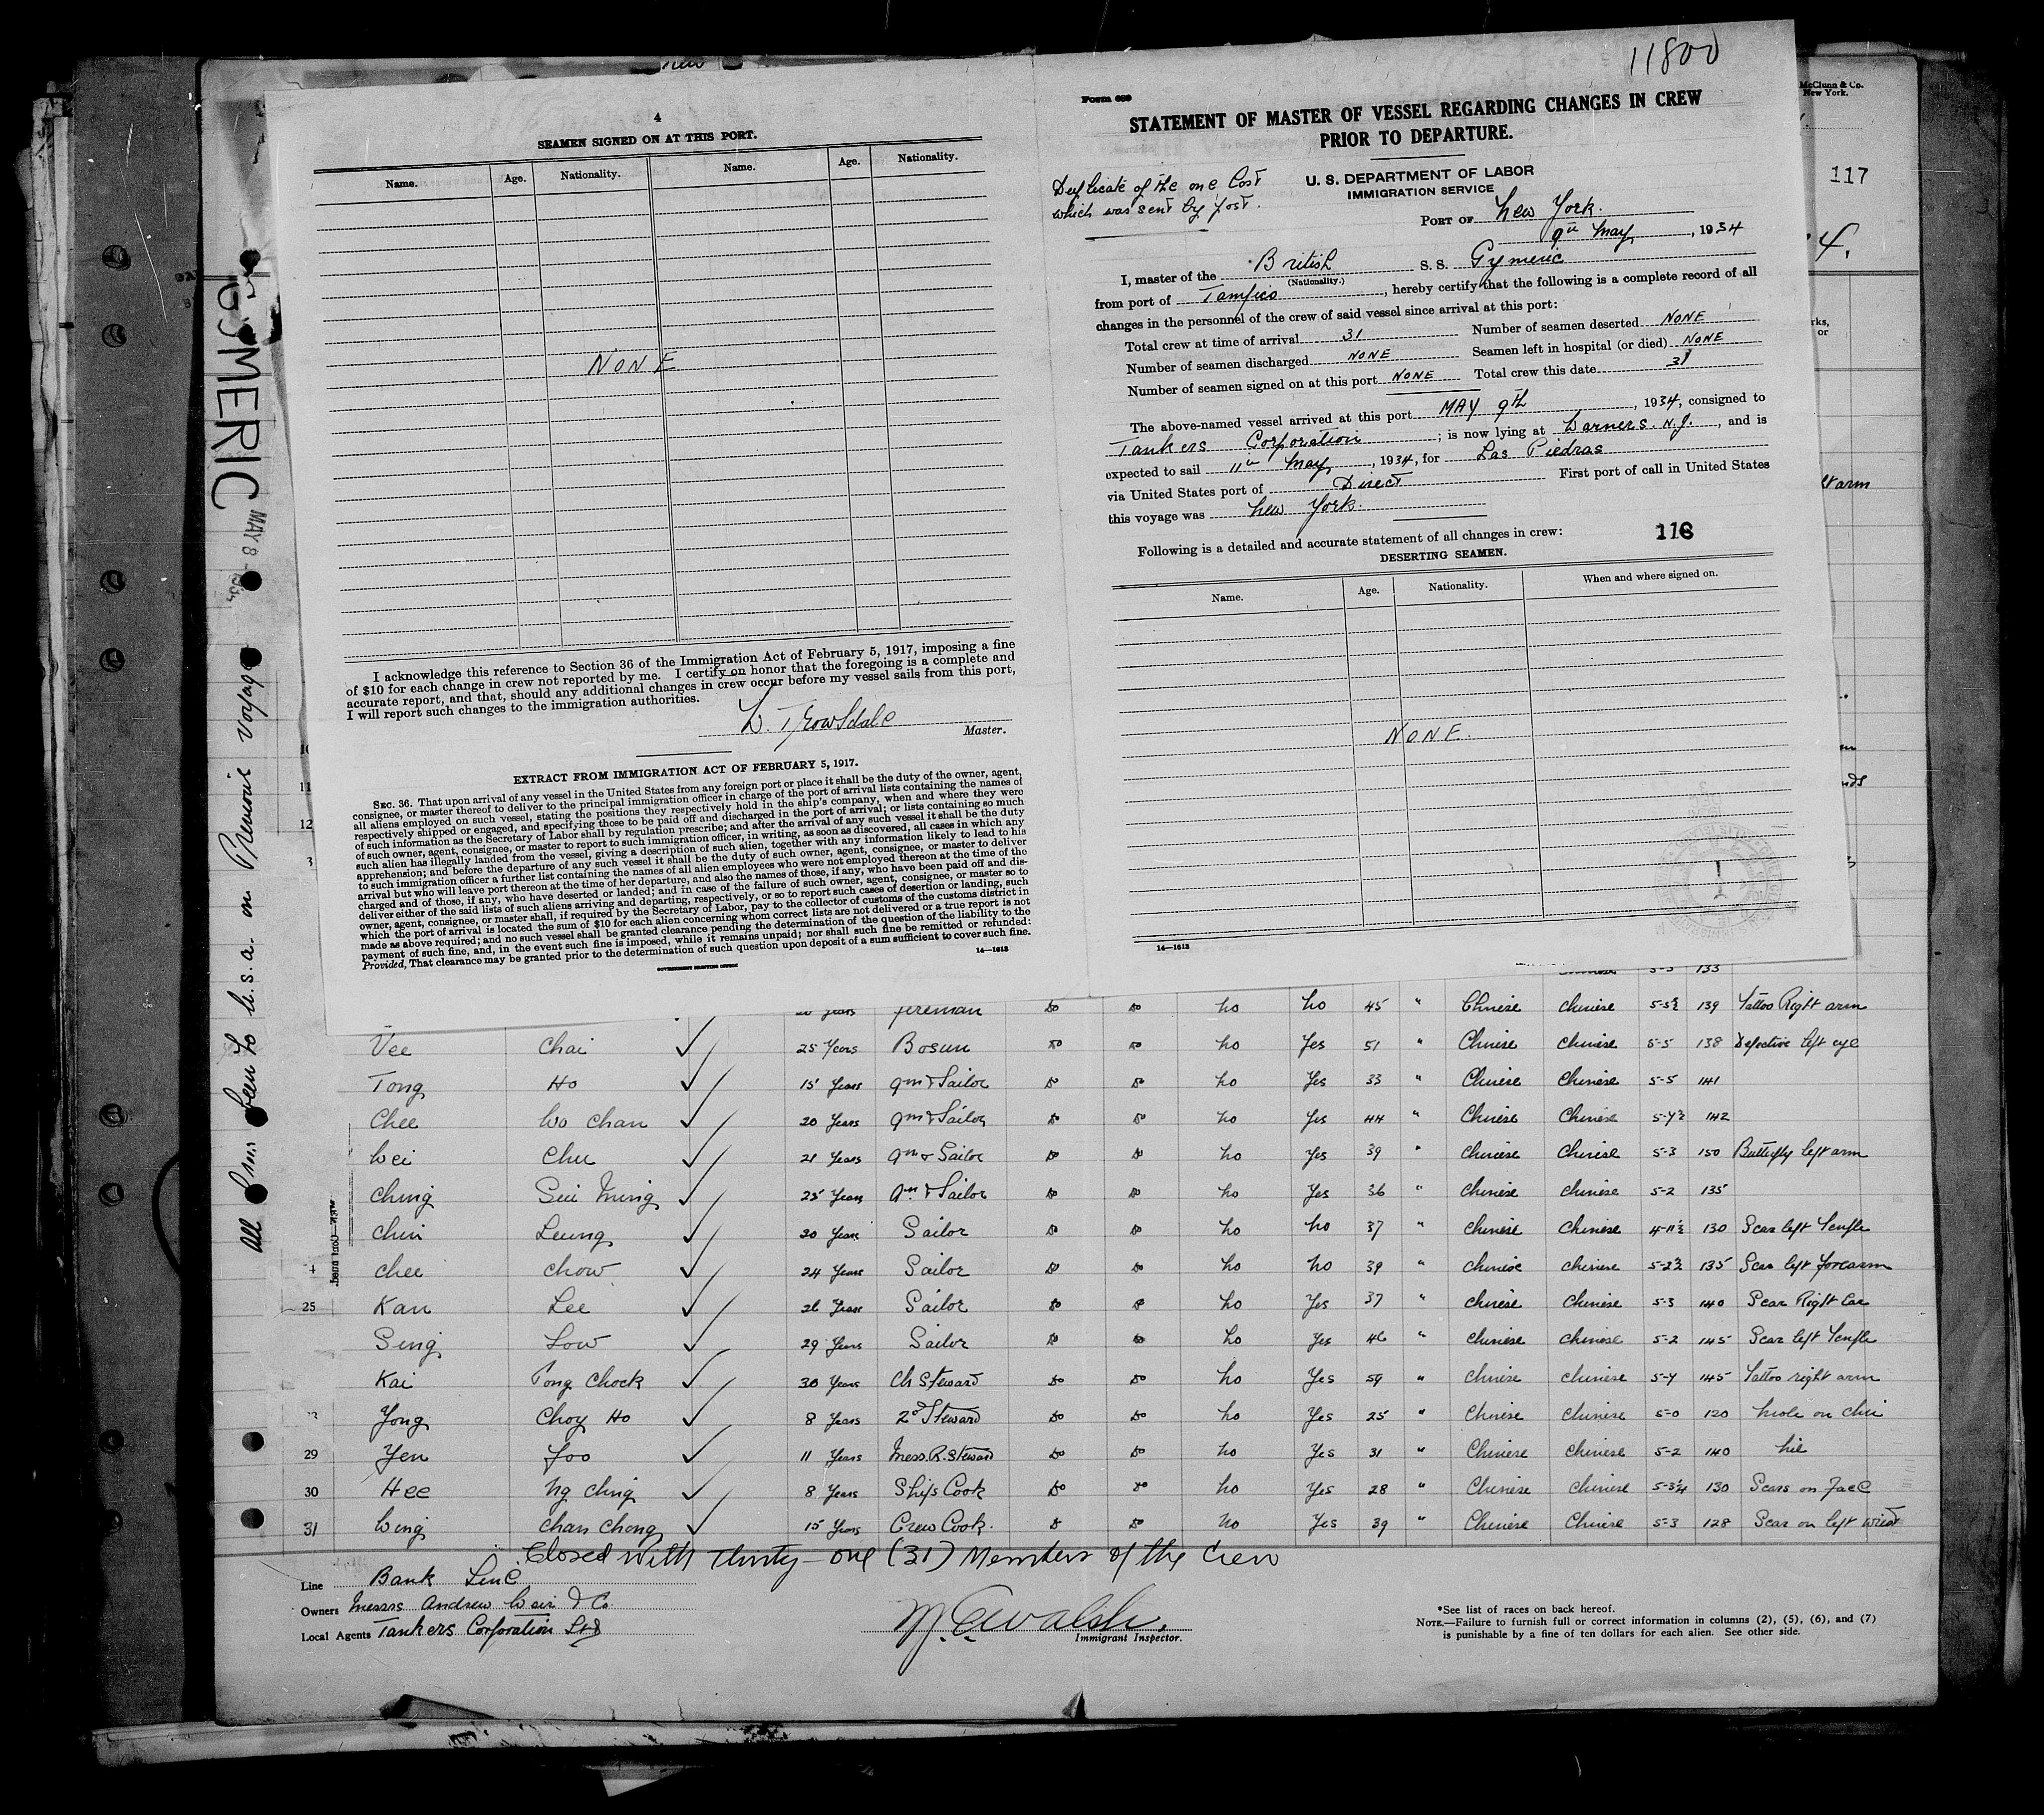 11800
McClunn & Co.
New York.
117
4.
GYMERIC
MAY 8
All been to U.S.A. on Previous voyage
4
SEAMEN SIGNED ON AT THIS PORT.
Name. Age. Nationality. Name. Age. Nationality.
NONE
I acknowledge this reference to Section 36 of the Immigration Act of February 5, 1917, imposing a fine
of $10 for each change in crew not reported by me. I certify on honor that the foregoing is a complete and
accurate report, and that, should any additional changes in crew occur before my vessel sails from this port,
I will report such changes to the immigration authorities.
L. Trowsdale
Master.
EXTRACT FROM IMMIGRATION ACT OF FEBRUARY 5, 1917.
SEC. 36. That upon arrival of any vessel in the United States from any foreign port or place it shall be the duty of the owner, agent,
consignee, or master thereof to deliver to the principal immigration officer in charge of the port of arrival lists containing the names of
all aliens employed on such vessel, stating the positions they respectively hold in the ship's company, when and where they were
respectively shipped or engaged, and specifying those to be paid off and discharged in the port of arrival; or lists containing so much
of such information as the Secretary of Labor shall by regulation prescribe; and after the arrival of any such vessel it shall be the duty
of such owner, agent, consignee, or master to report to such immigration officer, in writing, as soon as discovered, all cases in which any
such alien has illegally landed from the vessel, giving a description of such alien, together with any information likely to lead to his
apprehension; and before the departure of any such vessel it shall be the duty of such owner, agent, consignee, or master to deliver
to such immigration officer a further list containing the names of all alien employees who were not employed thereon at the time of the
arrival but who will leave port thereon at the time of her departure, and also the names of those, if any, who have been paid off and dis-
charged and of those, if any, who have deserted or landed; and in case of the failure of such owner, agent, consignee, or master so to
deliver either of the said lists of such aliens arriving and departing, respectively, or so to report such cases of desertion or landing, such
owner, agent, consignee, or master shall, if required by the Secretary of Labor, pay to the collector of customs of the customs district in
which the port of arrival is located the sum of $10 for each alien concerning whom correct lists are not delivered or a true report is not
made as above required; and no such vessel shall be granted clearance pending the determination of the question of the liability to the
payment of such fine, and, in the event such fine is imposed, while it remains unpaid; nor shall such fine be remitted or refunded:
Provided, That clearance may be granted prior to the determination of such question upon deposit of a sum sufficient to cover such fine.
14—1613
GOVERNMENT PRINTING OFFICE
Form 689
STATEMENT OF MASTER OF VESSEL REGARDING CHANGES IN CREW
PRIOR TO DEPARTURE.
Duplicate of the one lost
which was sent by post.
U. S. DEPARTMENT OF LABOR
IMMIGRATION SERVICE
PORT OF New York.
9th May, 1934
I, master of the British S. S. Gymeric
(Nationality.)
from port of Tampico, hereby certify that the following is a complete record of all
changes in the personnel of the crew of said vessel since arrival at this port:
Total crew at time of arrival 31 Number of seamen deserted NONE
Number of seamen discharged NONE Seamen left in hospital (or died) NONE
Number of seamen signed on at this port NONE Total crew this date 31
The above-named vessel arrived at this port MAY 9th, 1934, consigned to
Tankers Corporation; is now lying at Warners. N.J., and is
expected to sail 11th May, 1934, for Las Piedras
via United States port of Direct First port of call in United States
this voyage was New York.
Following is a detailed and accurate statement of all changes in crew: 116
DESERTING SEAMEN.
Name. Age. Nationality. When and where signed on.
NONE.
14—1613
133
fireman Do Do No No 45 " Chinese Chinese 5-5½ 139 Tattoo Right arm
Vee Chai 25 Years Bosun Do Do No Yes 51 " Chinese Chinese 5-5 138 Defective left eye
Tong Ho 15 Years Qm & Sailor Do Do No Yes 33 " Chinese Chinese 5-5 141
Chee Wo Chan 20 Years Qm & Sailor Do Do No Yes 44 " Chinese Chinese 5-4½ 142
Wei Chu 21 Years Qm & Sailor Do Do No Yes 39 " Chinese Chinese 5-3 150 Butterfly left arm
Ching Sui Ming 25 Years Qm & Sailor Do Do No Yes 36 " Chinese Chinese 5-2 135
Chin Leung 20 Years Sailor Do Do No No 37 " Chinese Chinese 4-11½ 130 Scar left Temple
Chee Chow 24 Years Sailor Do Do No No 39 " Chinese Chinese 5-2½ 135 Scar left forearm
25 Kan Lee 26 Years Sailor Do Do No Yes 37 " Chinese Chinese 5-3 140 Scar Right Ear
Sing Low 29 Years Sailor Do Do No Yes 46 " Chinese Chinese 5-2 145 Scar left Temple
Kai Tong Chock 30 Years Ch Steward Do Do No Yes 59 " Chinese Chinese 5-4 145 Tattoo right arm
Yong Choy Ho 8 Years 2nd Steward Do Do No Yes 25 " Chinese Chinese 5-0 120 Mole on chin
29 Yen Foo 11 Years Mess. R. Steward Do Do No Yes 31 " Chinese Chinese 5-2 140 Nil
30 Hee Ng Ching 8 Years Ships Cook Do Do No Yes 28 " Chinese Chinese 5-3¼ 130 Scars on Face
31 Wing Chan Chong 15 Years Crew Cook. Do Do No Yes 39 " Chinese Chinese 5-3 128 Scar on left wrist
Closed with Thirty-one (31) Members of the Crew
Line Bank Line
Owners Messrs Andrew Weir & Co
Local Agents Tankers Corporation Ltd
M. C. Walsh.
Immigrant Inspector.
*See list of races on back hereof.
NOTE.—Failure to furnish full or correct information in columns (2), (5), (6), and (7)
is punishable by a fine of ten dollars for each alien. See other side.